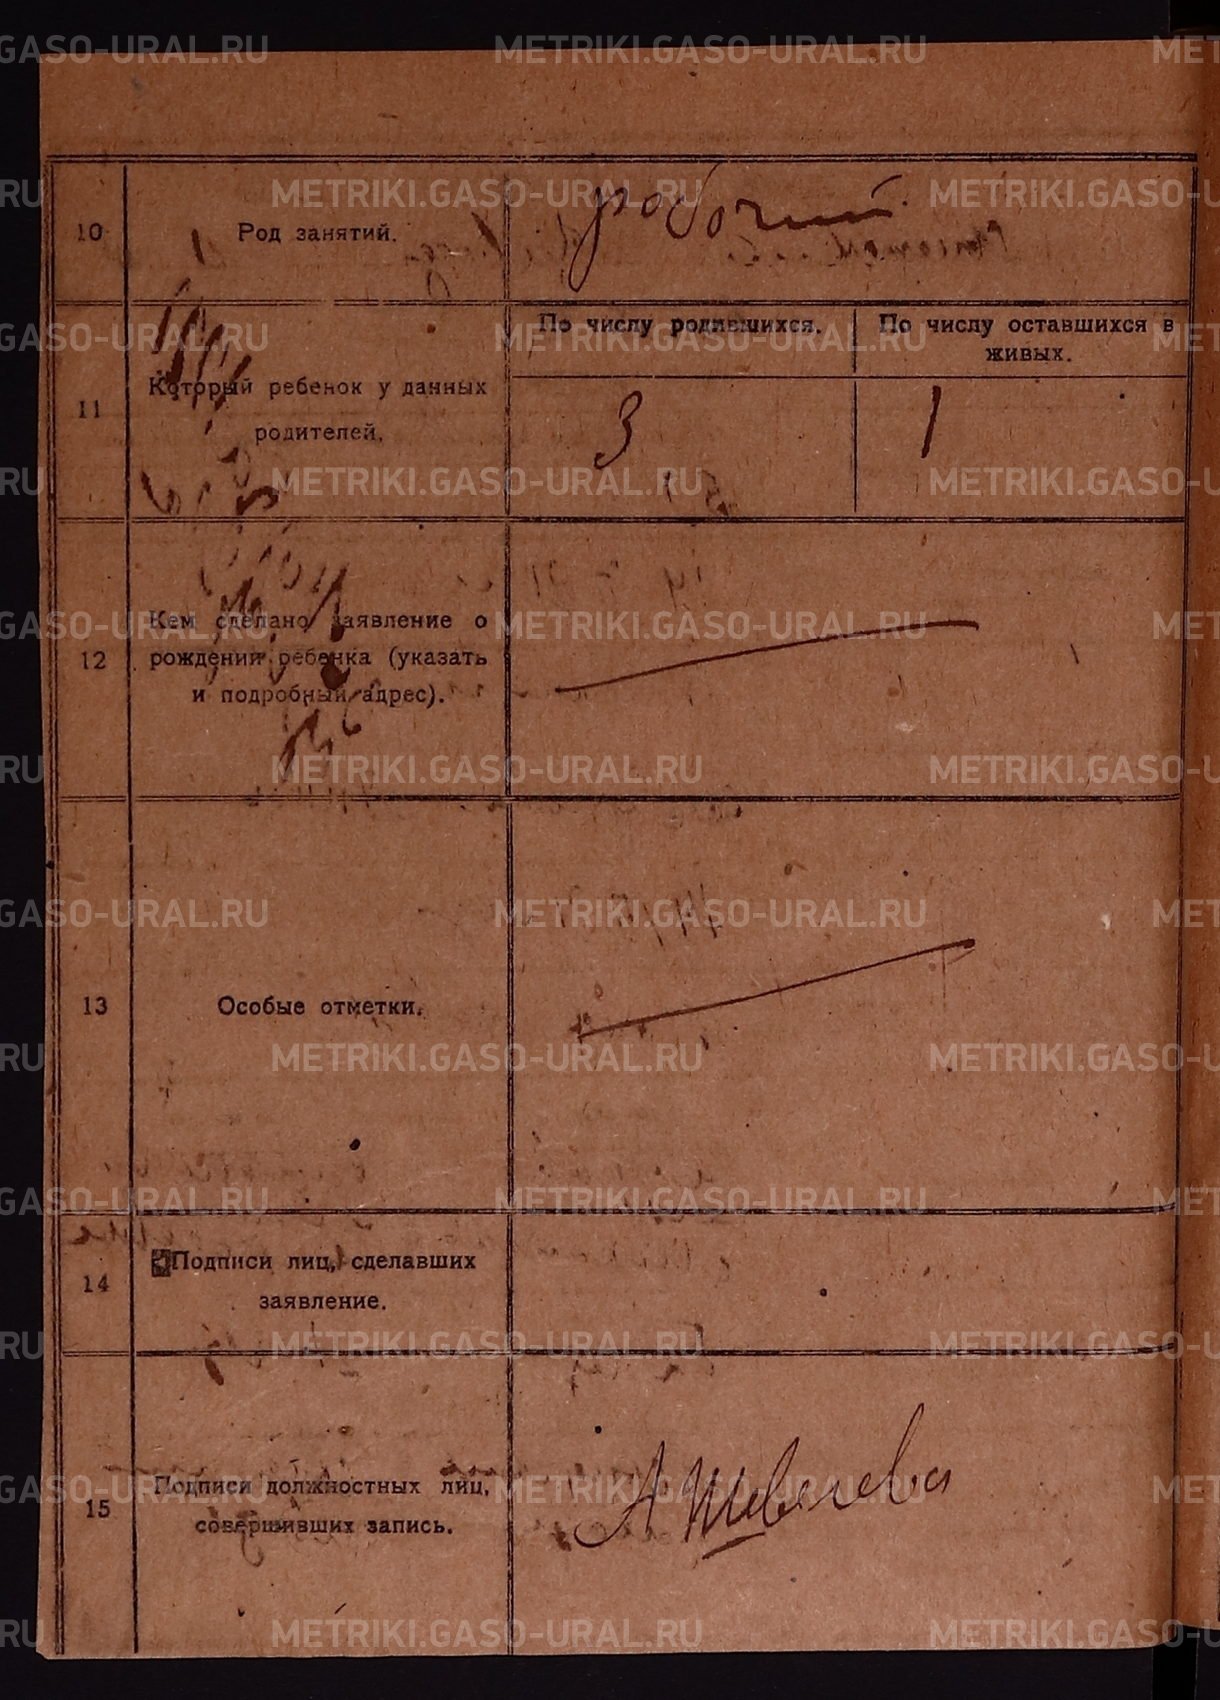 10
Род занятий.
рабочий.
11
Который ребенок у данных
родителей.
По числу родившихся.
По числу оставшихся в
живых.
3
1
12
Кем сделано заявление о
рождении ребенка (указать
и подробный адрес).
13
Особые отметки.
14
Подписи лиц, сделавших
заявление.
15
Подписи должностных лиц,
совершивших запись.
А Шевелева
METRIKI.GASO-URAL.RU